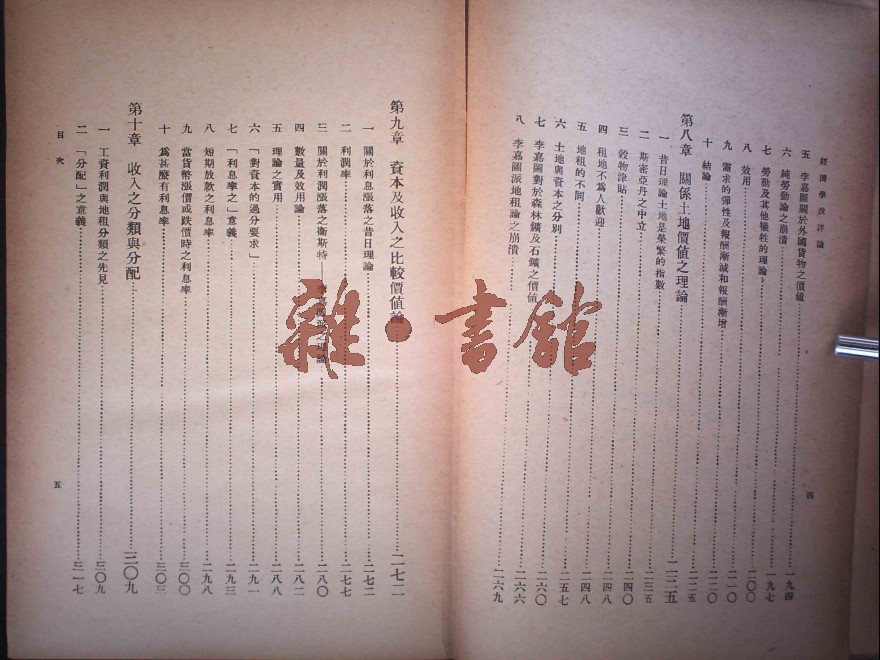 經濟學說評論
四
五 李嘉圖關於外國貨物之價値……一九四
六 純勞動論之崩潰……一九七
七 勞動及其他犧牲的理論……二〇〇
八 效用……二一〇
九 需求的彈性及報酬漸減和報酬漸增……二二〇
十 結論……二二五
第八章 關係土地價値之理論……二三五
一 昔日理論土地是榮繁的指數……二三五
二 斯密亞丹之中立……二四〇
三 穀物津貼……二四八
四 租地不爲人歡迎……二四八
五 地租的不同……二五七
六 土地與資本之分別……二六〇
七 李嘉圖對於森林鑛及石鑛之價値……二六六
八 李嘉圖派地租論之崩潰……二六九
第九章 資本及收入之比較價値論……二七二
一 關於利息漲落之昔日理論……二七二
二 利潤率……二七七
三 關於利潤漲落之衞斯特——李嘉圖派之理論……二八〇
四 數量及效用論……二八二
五 理論之實用……二八八
六 「對資本的過分要求」……二九一
七 「利息率之」意義……二九三
八 短期放款之利息率……二九八
九 當貨幣漲價或跌價時之利息率……三〇〇
十 爲甚麼有利息率……三〇三
第十章 收入之分類與分配……三〇九
一 工資利潤與地租分類之先見……三〇九
二 「分配」之意義……三一七
目次
五
雜·書館